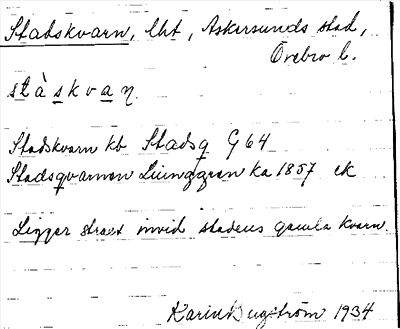 Stadskvarn, lht, Askersunds stad,
Örebro l.
stàskvaṇ.
Stadskvarn kb Stadsq G 64
Stadsqvarnon Ljunggren ka 1857 ek
Ligger strax invid stadens gamla kvarn.
Karin Bugström 1934